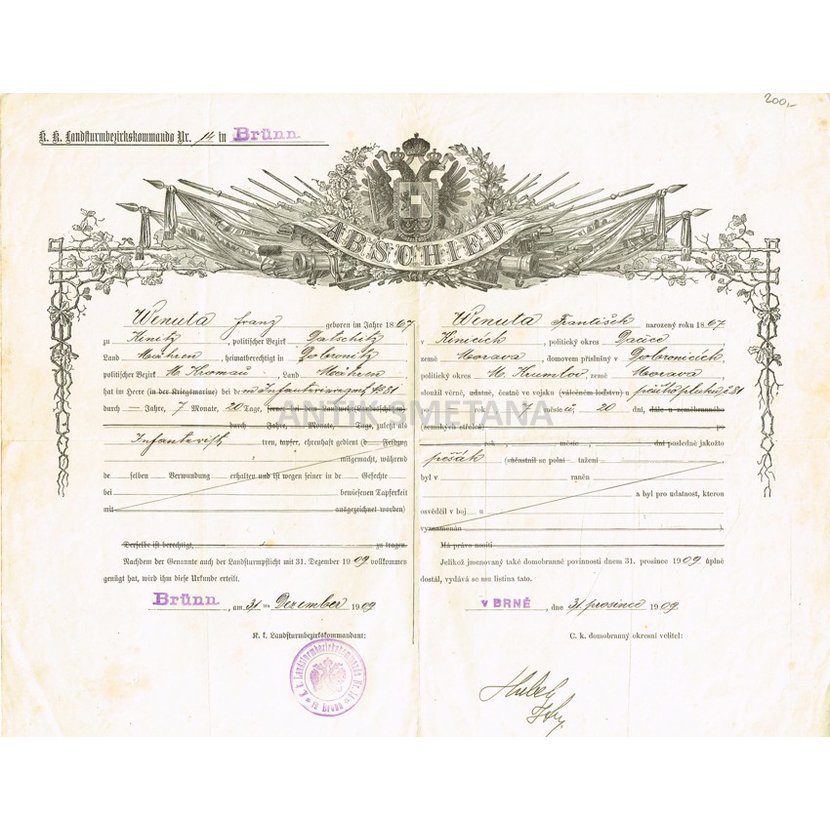 200,-
K. K. Landsturmbezirkskommando Nr. 14 in Brünn.
ABSCHIED
Wenula Franz geboren im Jahre 1867
zu Kinitz, politischer Bezirk Datschitz,
Land Mähren, heimatberechtigt in Dobronitz,
politischer Bezirk M. Kromau, Land Mähren
hat im Heere (in der Kriegsmarine) bei dem Infanterieregmt. № 81
durch — Jahre, 7 Monate, 20 Tage,
durch Jahre, Monate, Tage, zuletzt als
Infanterist treu, tapfer, ehrenhaft gedient (d Feldzug
mitgemacht, während
de selben Verwundung erhalten und ist wegen seiner in de Gefechte
bei bewiesenen Tapferkeit
mit ausgezeichnet worden)
Derselbe ist berechtigt, zu tragen.
Nachdem der Genannte auch der Landsturmpflicht mit 31. Dezember 1909 vollkommen
genügt hat, wird ihm diese Urkunde erteilt.
Brünn., am 31ten Dezember 1909
K. k. Landsturmbezirkskommandant:
K. k. Landsturmbezirkskommando Nr. 14 in Brünn
Wenula František narozený roku 1867
v Kinicích, politický okres Dačice,
země Morava, domovem příslušný v Dobronicích,
politický okres M. Krumlov, země Morava
sloužil věrně, udatně, čestně ve vojsku (válečném loďstvu) u pěšího pluku č 81
7 měsíců, 20 dní, dále u zeměbranného
(zemských střelců)
rok měsíc, dní posledně jakožto
pěšák (súčastnil se polní tažení
byl v raněn
a byl pro udatnost, kterou
osvědčil v boj u
vyznamenán)
Má právo nositi
Jelikož jmenovaný také domobranné povinnosti dnem 31. prosince 1909 úplně
dostál, vydává se mu listina tato.
V BRNĚ, dne 31 prosince 1909.
C. k. domobranný okresní velitel:
ANTIK SMETANA